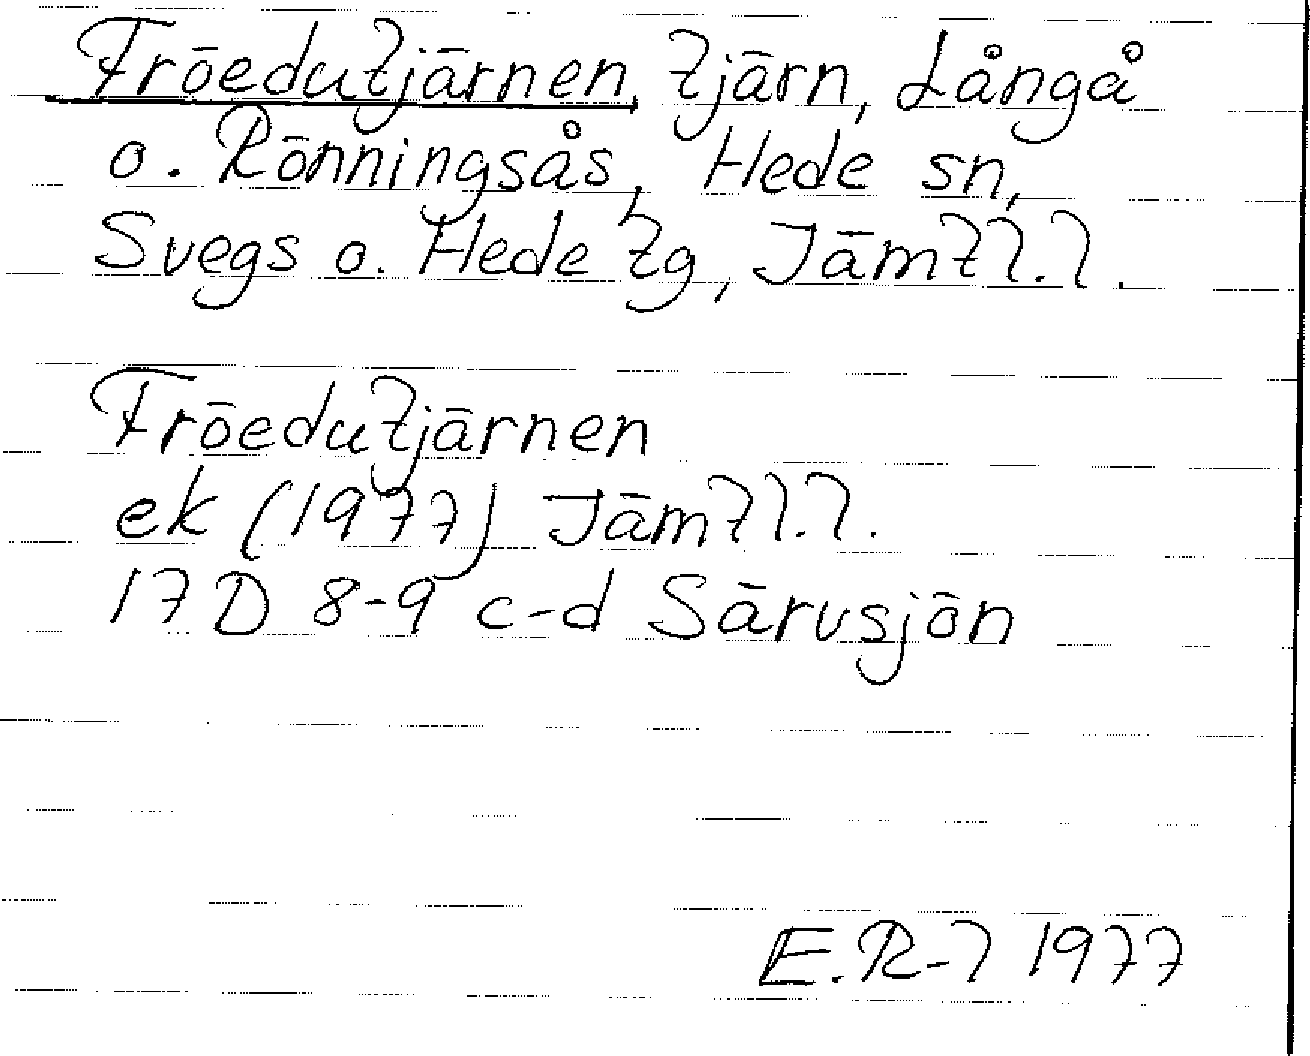 Fröedutjärnen, tjärn, Långå
o. Rönningsås, Hede sn,
Svegs o. Hede tg, Jämtl.l.
Fröedutjärnen
ek (1977) Jämtl.l.
17 D 8-9 c-d Särvsjön
E.R-l 1977